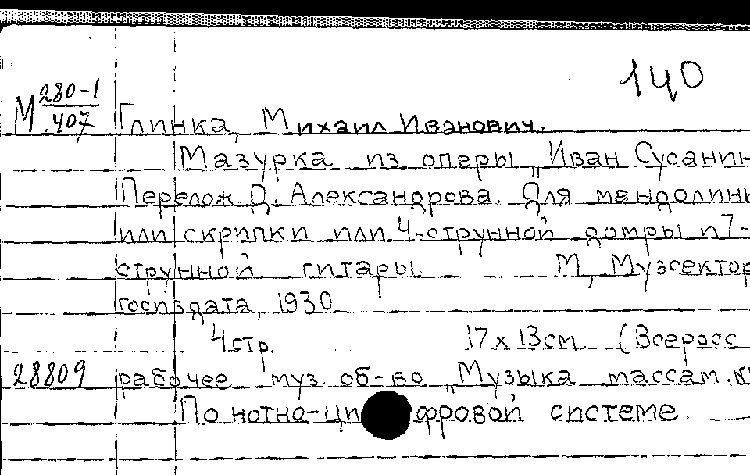 140
М 280-1
407
Глинка, Михаил Иванович.
Мазурка из оперы „Иван Сусанин
Перелож. Д. Александрова. Для мандолины
или скрипки или 4-струнной домры и 7-
струнной гитары М, Музсектор
госиздата, 1930
4 стр. 17 x 13 см (Всеросс
28809 рабочее муз. об-во „Музыка массам.
По нотно-цифровой системе.